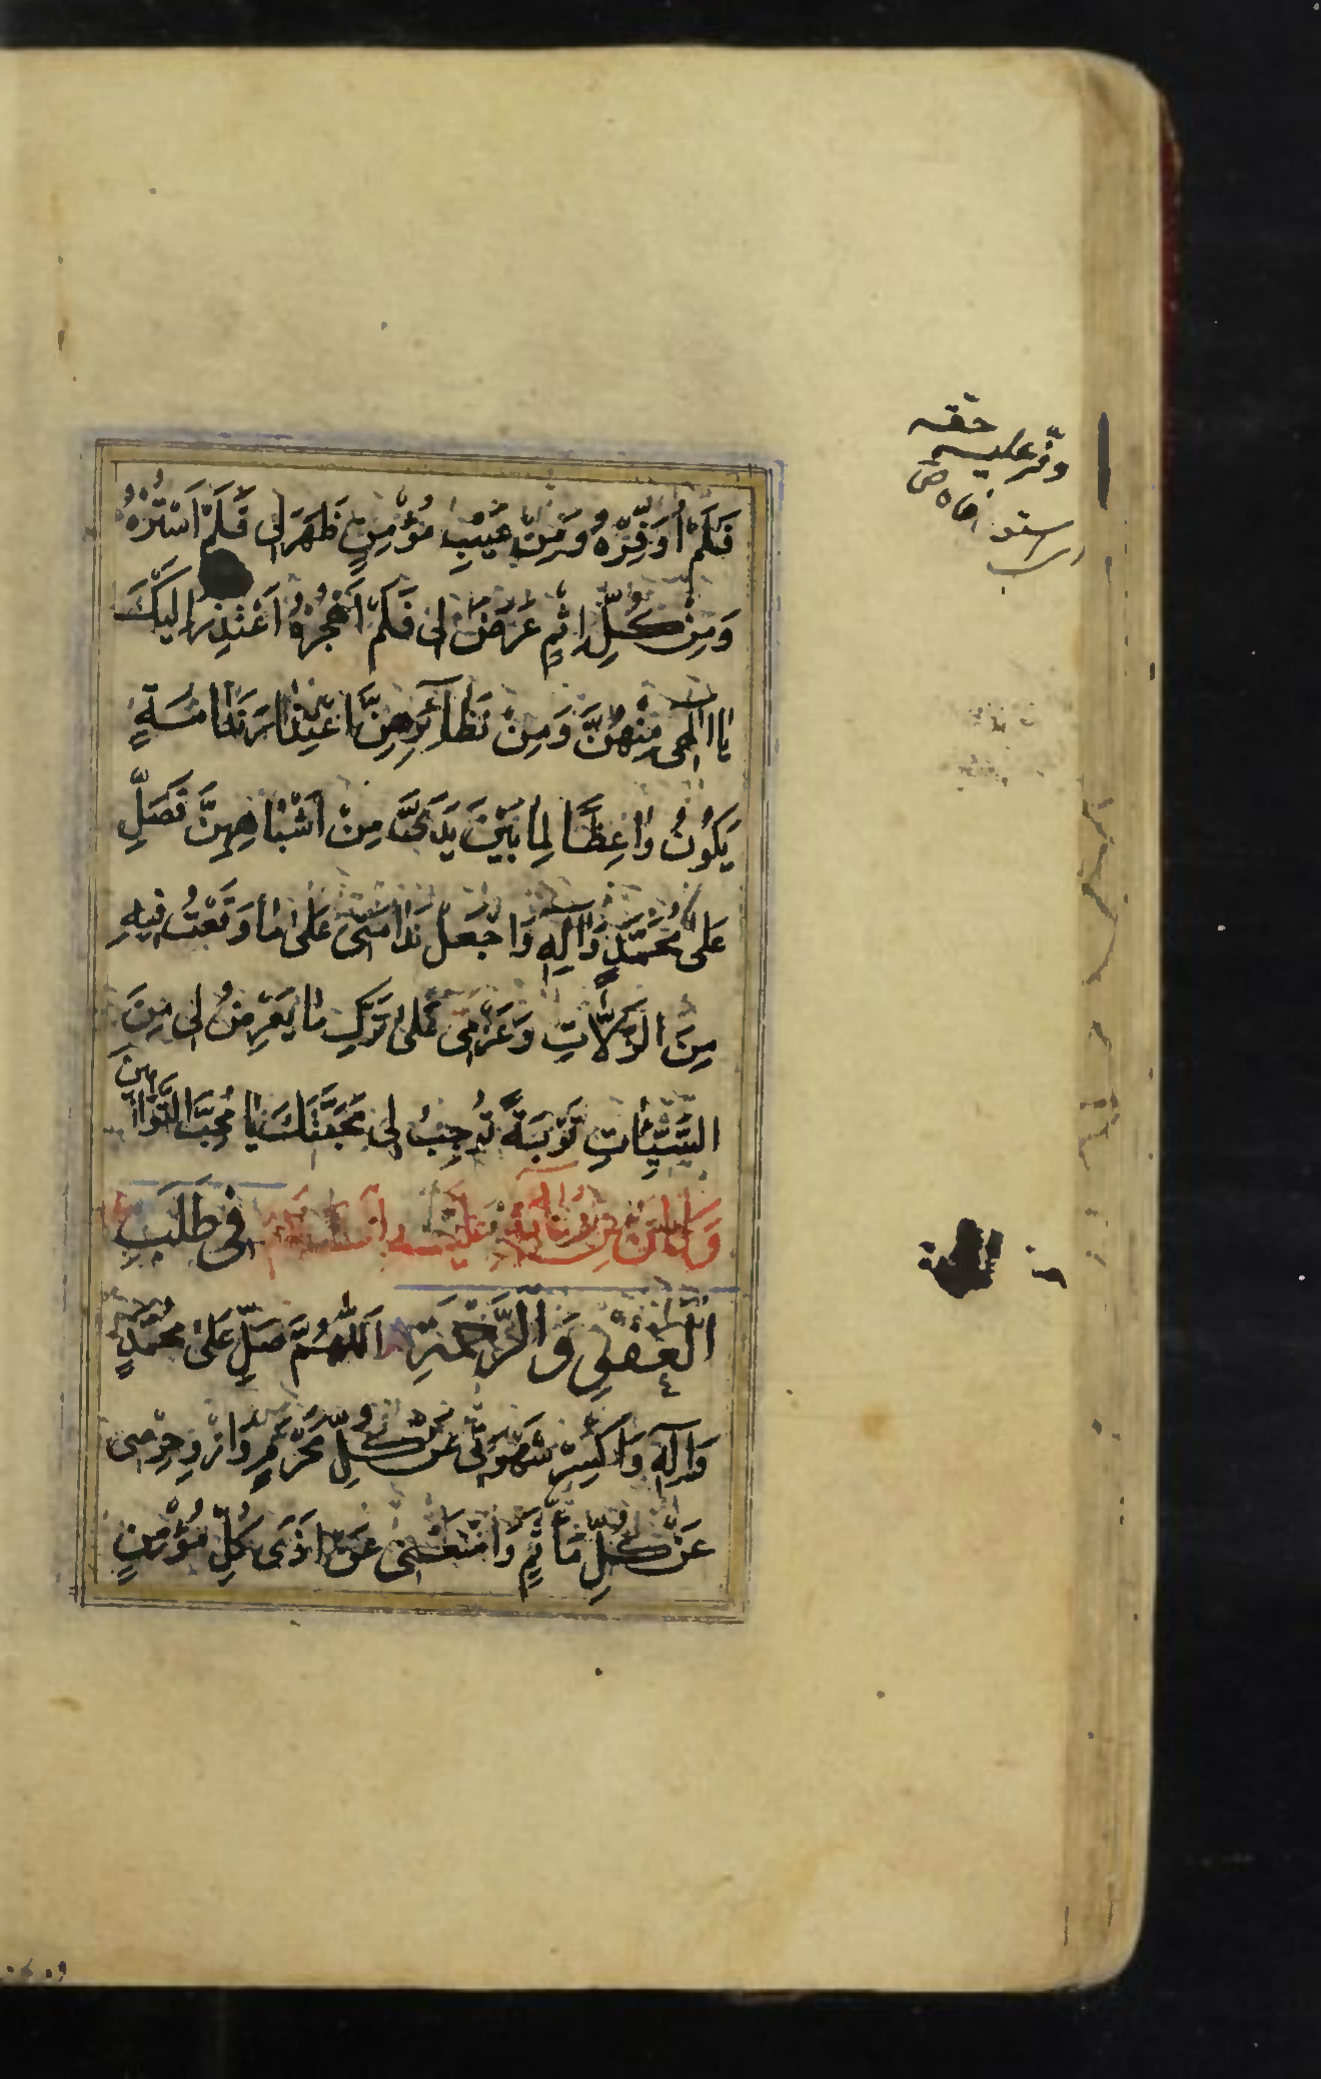 فَلَمْ أُوَفِّرْهُ وَمِنْ عَيْبِ مُؤْمِنٍ ظَهَرَ لِي فَلَمْ اَسْتُرْهُ
وَمِنْ كُلِّ اِثْمٍ عَرَضَ لِي فَلَمْ اَهْجُرْهُ اَعْتَذِرُ اِلَيْكَ
يَا اِلٰهِي مِنْهُنَّ وَمِنْ نَظَائِرِهِنَّ اعْتِذَارَ نَدَامَةٍ
يَكُونُ وَاعِظًا لِمَا بَيْنَ يَدَيَّ مِنْ اَشْبَاهِهِنَّ فَصَلِّ
عَلٰى مُحَمَّدٍ وَاٰلِهِ وَاجْعَلْ نَدَامَتِي عَلٰى مَا وَقَعْتُ فِيهِ
مِنَ الزَّلَّاتِ وَعَزْمِي عَلٰى تَرْكِ مَا يَعْرِضُ لِي مِنَ
السَّيِّئَاتِ تَوْبَةً تُوجِبُ لِي مَحَبَّتَكَ يَا مُحِبَّ التَّوَّابِينَ
وَكَانَ مِنْ دُعَائِهِ عَلَيْهِ السَّلَامُ فِي طَلَبِ
الْعَفْوِ وَالرَّحْمَةِ اَللّٰهُمَّ صَلِّ عَلٰى مُحَمَّدٍ
وَاٰلِهِ وَاكْسِرْ شَهْوَتِي عَنْ كُلِّ مَحْرَمٍ وَازْوِ حِرْصِي
عَنْ كُلِّ مَأْثَمٍ وَامْنَعْنِي عَنْ اَذٰى كُلِّ مُؤْمِنٍ
وفر عليه حقه